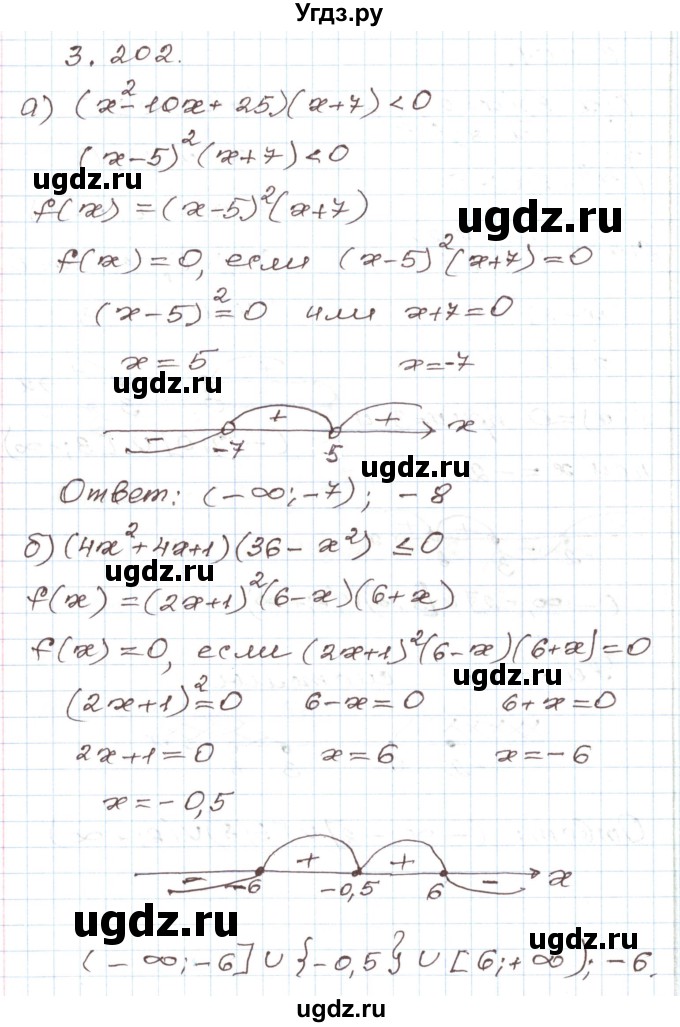 Угдз.ру
3.202.
а) (x²-10x+25)(x+7)<0
(x-5)²(x+7)<0
ugdz.ru
f(x)=(x-5)²(x+7)
ugdz.ru
f(x)=0, если (x-5)²(x+7)=0
(x-5)²=0 или x+7=0
x=5 x=-7
ugdz.ru
- + + x
-7 5
ugdz.ru
Ответ: (-∞;-7); -8
б) (4x²+4x+1)(36-x²)≤0
ugdz.ru
f(x)=(2x+1)²(6-x)(6+x)
f(x)=0, если (2x+1)²(6-x)(6+x)=0
ugdz.ru
(2x+1)²=0 6-x=0 6+x=0
2x+1=0 x=6 x=-6
x=-0,5
- + + - x
-6 -0,5 6
ugdz.ru
ugdz.ru
(-∞;-6]∪{-0,5}∪[6;+∞); -6.
ugdz.ru